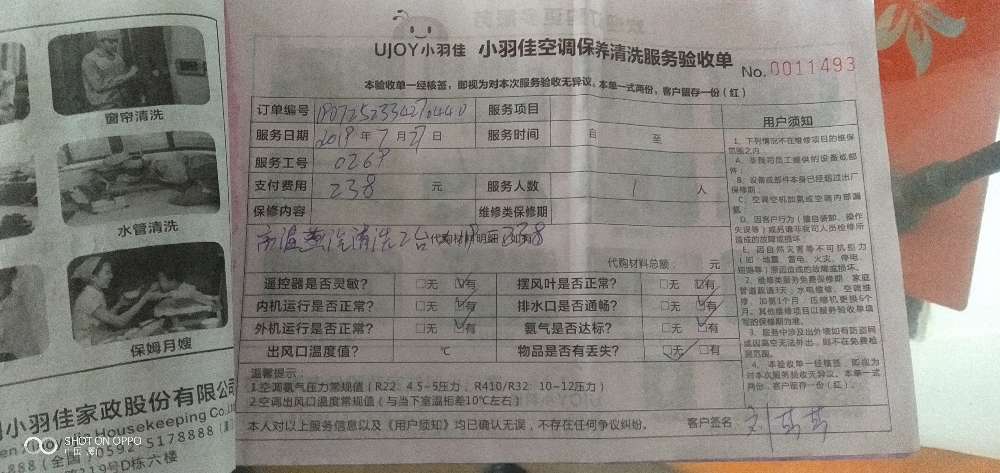 UJOY小羽佳 小羽佳空调保养清洗服务验收单
No. 0011493
本验收单一经核签，即视为对本次服务验收无异议，本单一式两份，客户留存一份（红）
订单编号 服务项目
服务日期 2019年7月27日 服务时间 自 至
服务工号 0269
支付费用 238 元 服务人数 1 人
保修内容 维修类保修期
高温蒸洗清洗2台
代购材料明细
代购材料总额： 元
遥控器是否灵敏？ □无 □有 摆风叶是否正常？ □无 □有
内机运行是否正常？ □无 □有 排水口是否通畅？ □无 □有
外机运行是否正常？ □无 □有 氨气是否达标？ □无 □有
出风口温度值？ ℃ 物品是否有丢失？ □无 □有
温馨提示：
1.空调氨气压力常规值（R22: 4.5-5压力，R410/R32: 10-12压力）
2.空调出风口温度常规值（与当下室温相差10℃左右）
本人对以上服务信息以及《用户须知》均已确认无误，不存在任何争议纠纷。 客户签名：
用户须知
1、下列情况不在维修项目的维保
范围之内
A、非我司员工提供的设备或部
件
B、设备或部件本身已经超过出厂
保修期
C、空调空机加氨或空调内部漏
氨
D、因客户行为（擅自装卸、操作
失误等）或另请非我司人员检修所
造成的故障或损坏
E、因自然灾害等不可抗拒力
（如：地震、雷电、火灾、停电、
短路等）原因造成的故障或损坏。
2、维修类服务免费保修期：家庭
管道疏通3天，水电维修、空调维
修、加氨1个月，压缩机更换6个
月。其他维修项目以服务验收单填
写的保修期为准。
3、服务中涉及出外墙如有防盗网
或因高空无法外出，则不在免费检
测范围。
4、本验收单一经核签，即视为
对本次服务验收无异议。本单一式
两份，客户留存一份（红）。
窗帘清洗
水管清洗
保姆月嫂
小羽佳家政股份有限公司
Xiaoyujia Housekeeping Co.,
（全国）0592-5178888
319号D栋六楼
SHOT ON OPPO